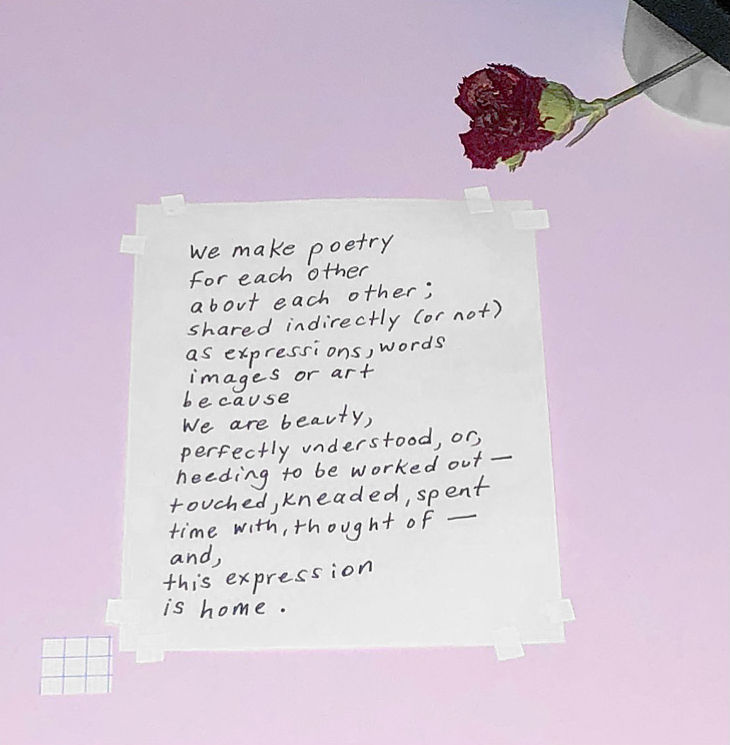 We make poetry
for each other
about each other;
shared indirectly (or not)
as expressions, words
images or art
because
We are beauty,
perfectly understood, or,
needing to be worked out —
touched, kneaded, spent
time with, thought of —
and,
this expression
is home.